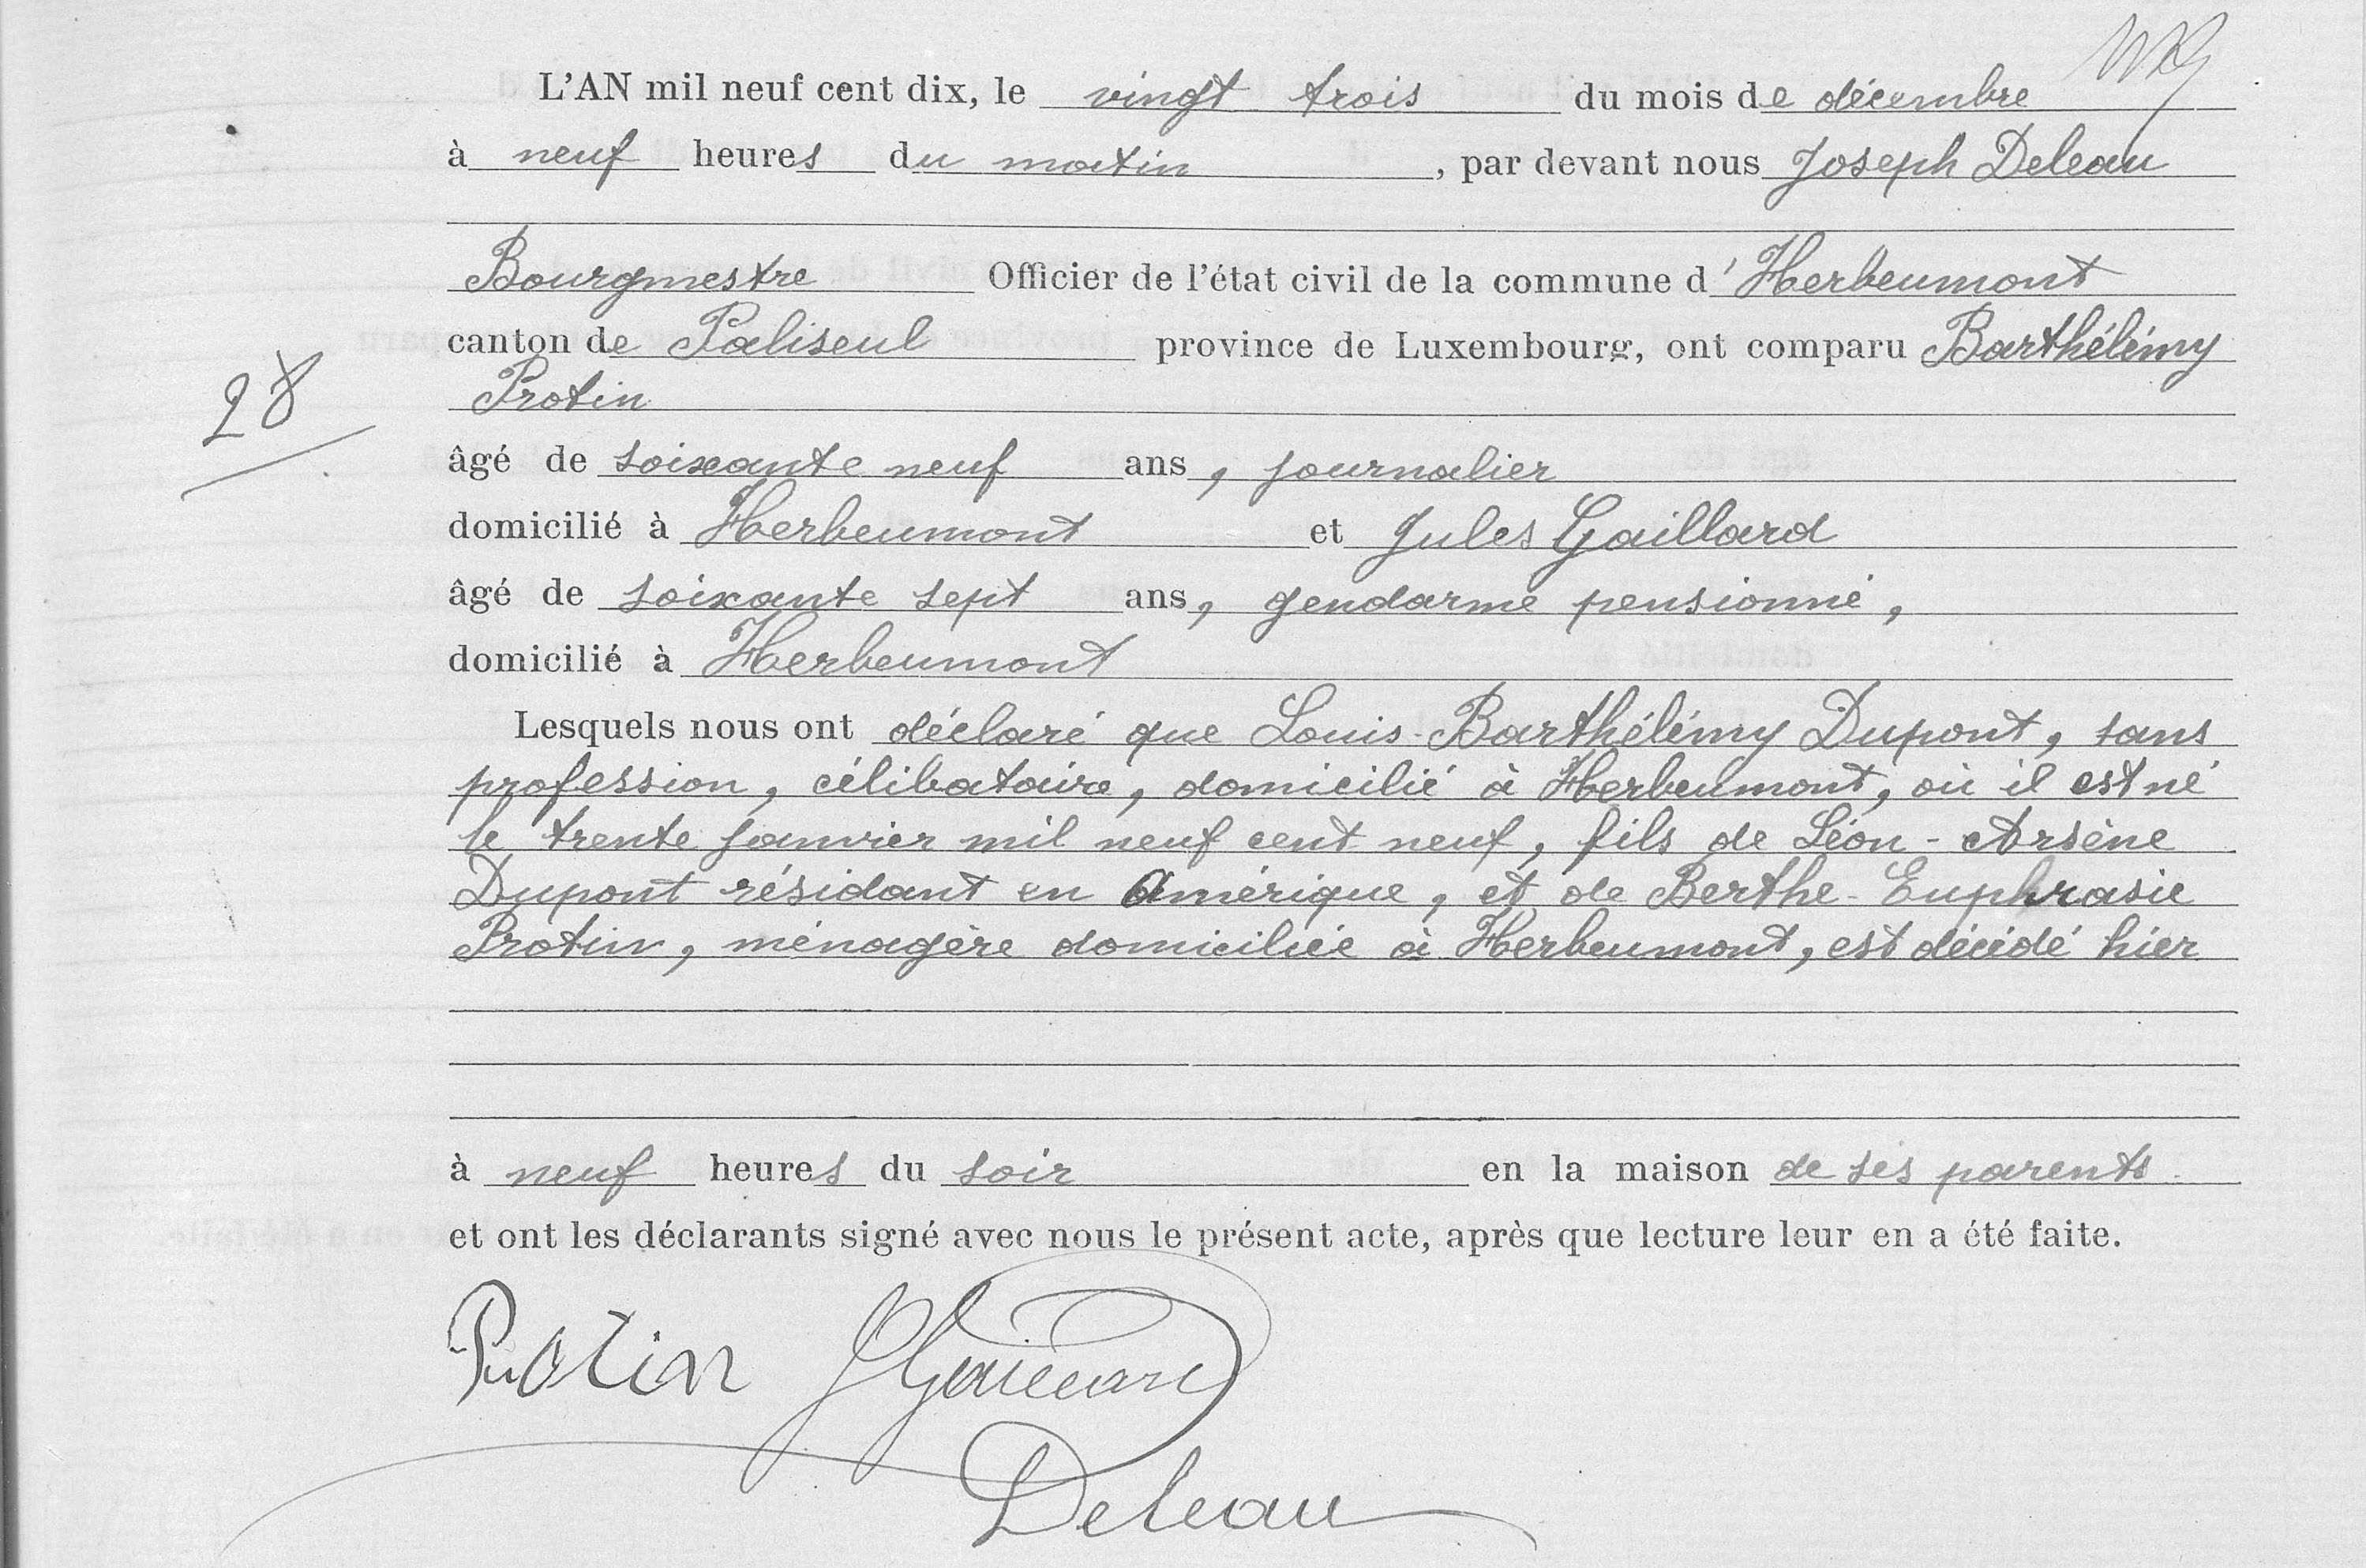 L'AN mil neuf cent dix, le vingt trois du mois de décembre
à neuf heures du matin, par devant nous Joseph Deleau
Bourgmestre Officier de l'état civil de la commune d'Herbeumont
canton de Paliseul province de Luxembourg, ont comparu Barthélémy
Protin
28
âgé de soixante neuf ans, journalier
domicilié à Herbeumont et Jules Gaillard
âgé de soixante sept ans, gendarme pensionné,
domicilié à Herbeumont
Lesquels nous ont déclaré que Louis-Barthélémy Dupont, sans
profession, célibataire, domicilié à Herbeumont, où il est né
le trente janvier mil neuf cent neuf, fils de Léon-Arsène
Dupont résidant en Amérique, et de Berthe-Euphrasie
Protin, ménagère domiciliée à Herbeumont, est décédé hier
à neuf heures du soir en la maison de ses parents.
et ont les déclarants signé avec nous le présent acte, après que lecture leur en a été faite.
Protin JGaillard
Deleau